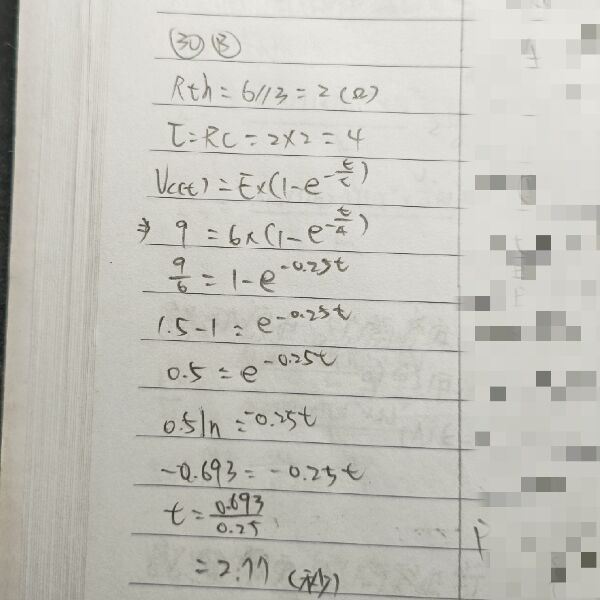 30 B
Rth = 6//3 = 2 (Ω)
τ = RC = 2×2 = 4
Vc(t) = E×(1-e^-t/τ)
⇒ 9 = 6×(1-e^-t/4)
9/6 = 1-e^-0.25t
1.5-1 = e^-0.25t
0.5 = e^-0.25t
0.5ln = -0.25t
-0.693 = -0.25t
t = 0.693/0.25
= 2.77 (秒)